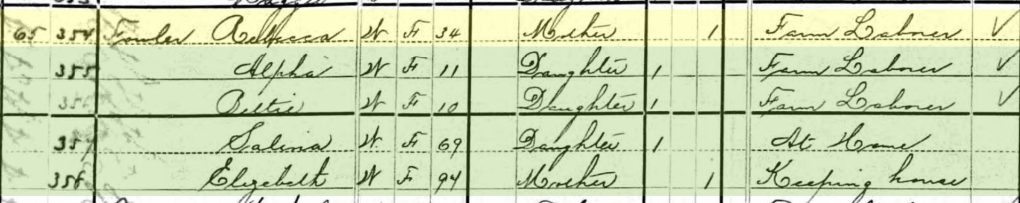 65 354 Fowler Rebecca W F 34 Mother 1 Farm Laborer
355 Alpha W F 11 Daughter 1 Farm Laborer
W F 10 Daughter 1 Farm Laborer
357 Salina W F 69 Daughter 1 At Home
Elizabeth W F 94 Mother 1 Keeping house